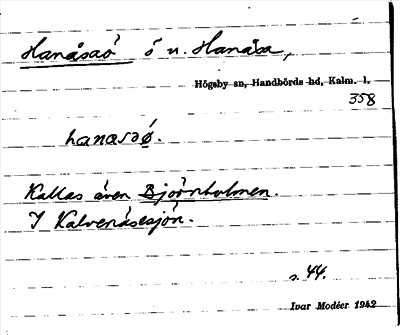 Hanåsaö ö n. Hanåsa,
Högsby sn, Handbörds hd, Kalm. l.
358
Kallas även Björnholmen.
I Kalvenäsesjön.
s. 44.
Ivar Modéer 1942